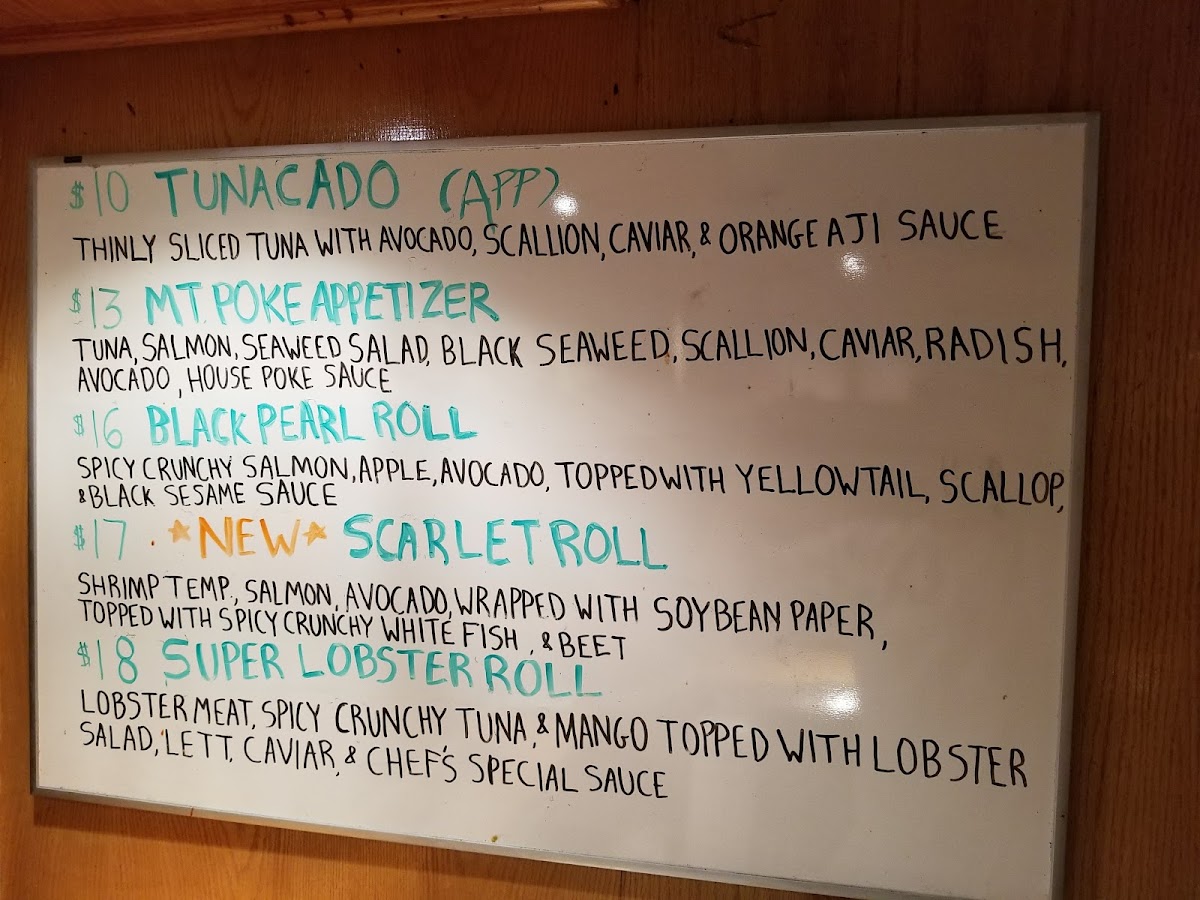 $10 TUNACADO (APP)
THINLY SLICED TUNA WITH AVOCADO, SCALLION, CAVIAR, & ORANGE AJI SAUCE
$13 MT. POKE APPETIZER
TUNA, SALMON, SEAWEED SALAD, BLACK SEAWEED, SCALLION, CAVIAR, RADISH,
AVOCADO, HOUSE POKE SAUCE
$16 BLACK PEARL ROLL
SPICY CRUNCHY SALMON, APPLE, AVOCADO, TOPPED WITH YELLOWTAIL, SCALLOP,
& BLACK SESAME SAUCE
$17 ★NEW★ SCARLET ROLL
SHRIMP TEMP., SALMON, AVOCADO, WRAPPED WITH SOYBEAN PAPER,
TOPPED WITH SPICY CRUNCHY WHITE FISH, & BEET
$18 SUPER LOBSTER ROLL
LOBSTER MEAT, SPICY CRUNCHY TUNA, & MANGO TOPPED WITH LOBSTER
SALAD, LETT, CAVIAR, & CHEF'S SPECIAL SAUCE